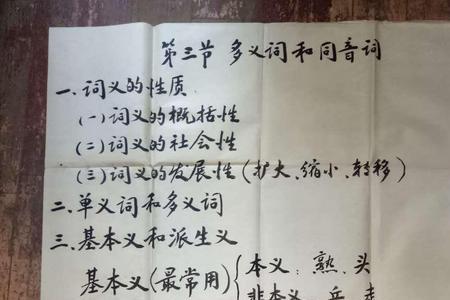 第三节 多义词和同音词
一、词义的性质
(一)词义的概括性
(二)词义的社会性
(三)词义的发展性(扩大、缩小、转移)
二、单义词和多义词
三、基本义和派生义
基本义(最常用){本义:熟、头
非本义:兵、走